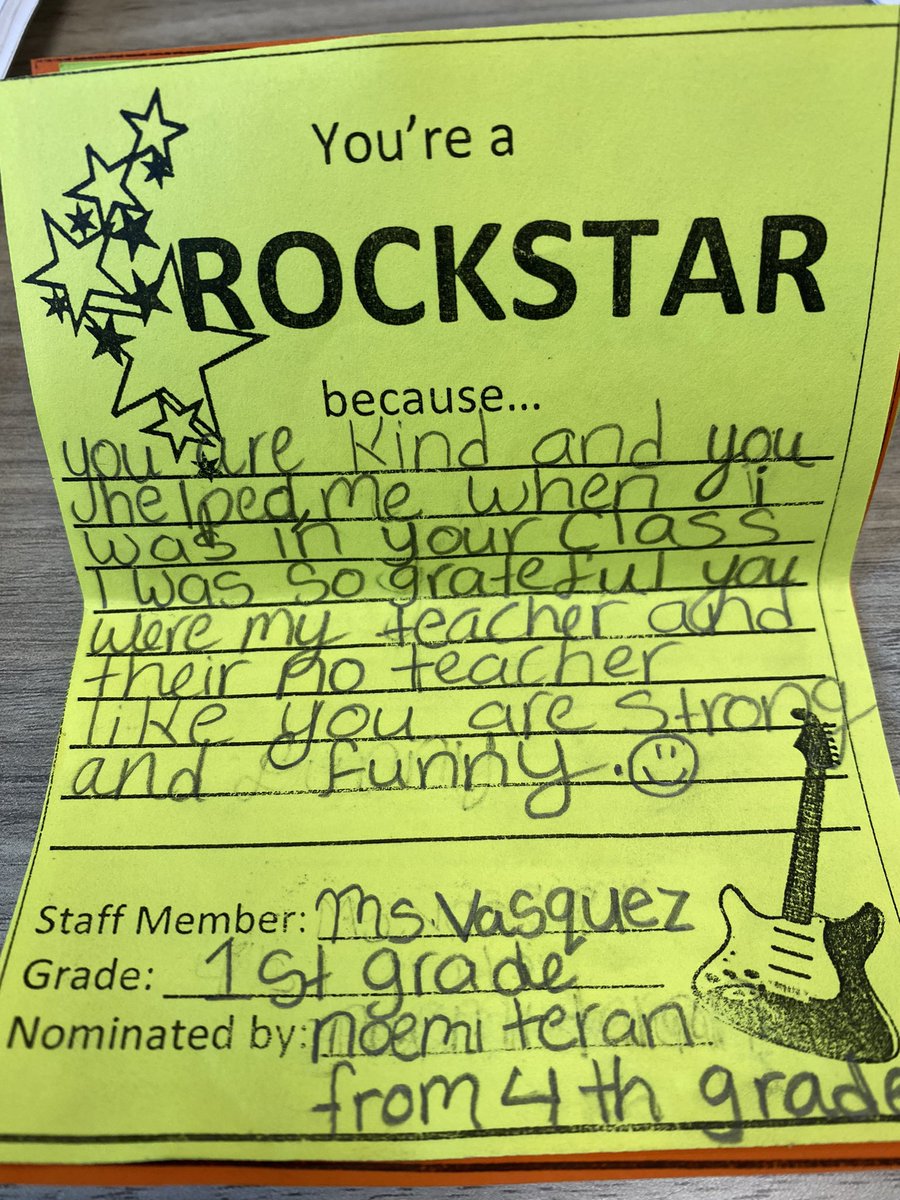 You're a
ROCKSTAR
because...
you are kind and you
helped me when i
was in your class
I was so grateful you
were my teacher and
their no teacher
like you are strong
and funny.
Staff Member: Ms. Vasquez
Grade: 1st grade
Nominated by: noemi teran
from 4th grade